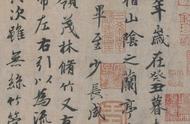 年歲在癸丑暮
稽山陰之蘭亭
畢至少長咸
領茂林脩竹又
帶左右引以為流
次雖無絲竹